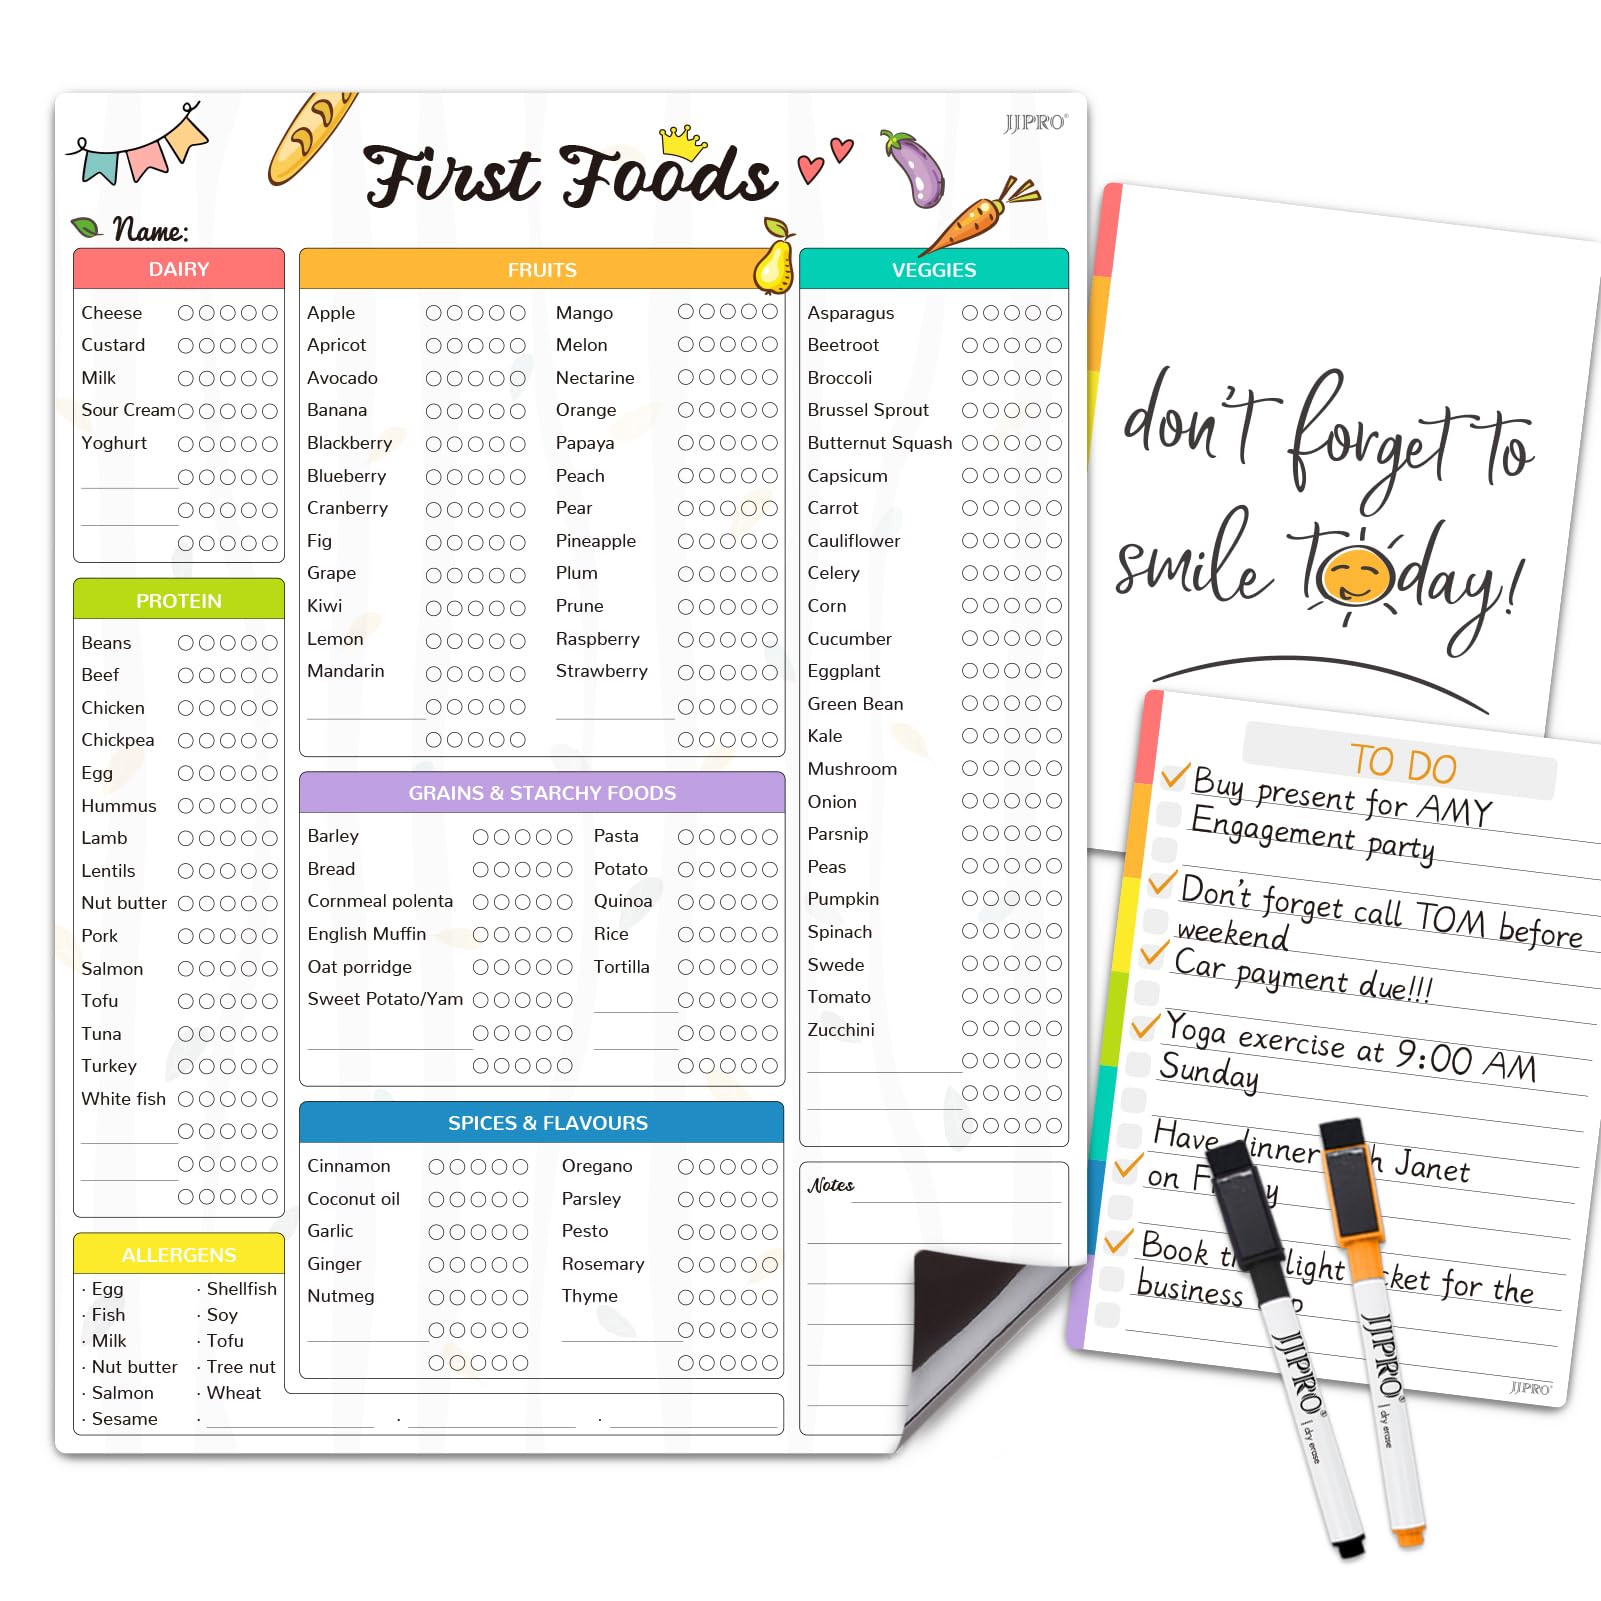 First Foods
JJPRO®
Name:
DAIRY
Cheese
Custard
Milk
Sour Cream
Yoghurt
PROTEIN
Beans
Beef
Chicken
Chickpea
Egg
Hummus
Lamb
Lentils
Nut butter
Pork
Salmon
Tofu
Tuna
Turkey
White fish
ALLERGENS
· Egg
· Fish
· Milk
· Nut butter
· Salmon
· Sesame
· Shellfish
· Soy
· Tofu
· Tree nut
· Wheat
FRUITS
Apple
Apricot
Avocado
Banana
Blackberry
Blueberry
Cranberry
Fig
Grape
Kiwi
Lemon
Mandarin
Mango
Melon
Nectarine
Orange
Papaya
Peach
Pear
Pineapple
Plum
Prune
Raspberry
Strawberry
GRAINS & STARCHY FOODS
Barley
Bread
Cornmeal polenta
English Muffin
Oat porridge
Sweet Potato/Yam
Pasta
Potato
Quinoa
Rice
Tortilla
SPICES & FLAVOURS
Cinnamon
Coconut oil
Garlic
Ginger
Nutmeg
Oregano
Parsley
Pesto
Rosemary
Thyme
VEGGIES
Asparagus
Beetroot
Broccoli
Brussel Sprout
Butternut Squash
Capsicum
Carrot
Cauliflower
Celery
Corn
Cucumber
Eggplant
Green Bean
Kale
Mushroom
Onion
Parsnip
Peas
Pumpkin
Spinach
Swede
Tomato
Zucchini
Notes
don't forget to
smile today!
TO DO
Buy present for AMY
Engagement party
Don't forget call TOM before
weekend
Car payment due!!!
Yoga exercise at 9:00 AM
Sunday
Have Janet
on
Book for the
business
JJPRO®
JJPRO® | dry erase
JJPRO® | dry erase